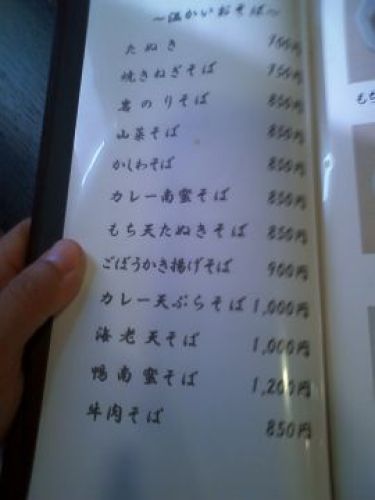 ～温かいおそば～
たぬき 700円
焼きねぎそば 750円
岩のりそば 800円
山菜そば 800円
かしわそば 800円
カレー南蜜そば 850円
もち天たぬきそば 850円
ごぼうかき揚げそば 900円
カレー天ぷらそば 1,000円
海老天そば 1,000円
鴨南蜜そば 1,200円
牛肉そば 850円
もち